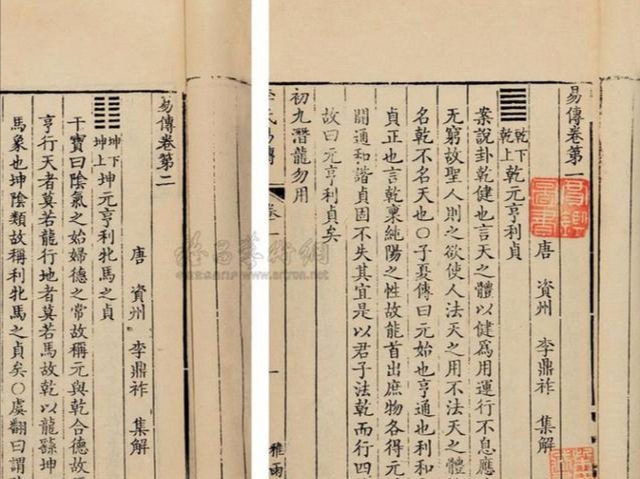 易傳卷第一
唐 資州 李鼎祚 集解
乾下
乾上
乾元亨利貞
案說卦乾健也言天之體以健爲用運行不息應
无窮故聖人則之欲使人法天之用不法天之體
名乾不名天也〇子夏傳曰元始也亨通也利和
貞正也言乾稟純陽之性故能首出庶物各得元
開通和諧貞固不失其宜是以君子法乾而行四
故曰元亨利貞矣
初九潛龍勿用
雅雨
易傳卷第二
唐 資州 李鼎祚 集解
坤下
坤上
坤元亨利牝馬之貞
干寶曰陰氣之始婦德之常故稱元與乾合德故
亨行天者莫若龍行地者莫若馬故乾以龍繇坤
馬象也坤陰類故稱利牝馬之貞矣〇虞翻曰謂
圖書
www.artron.net